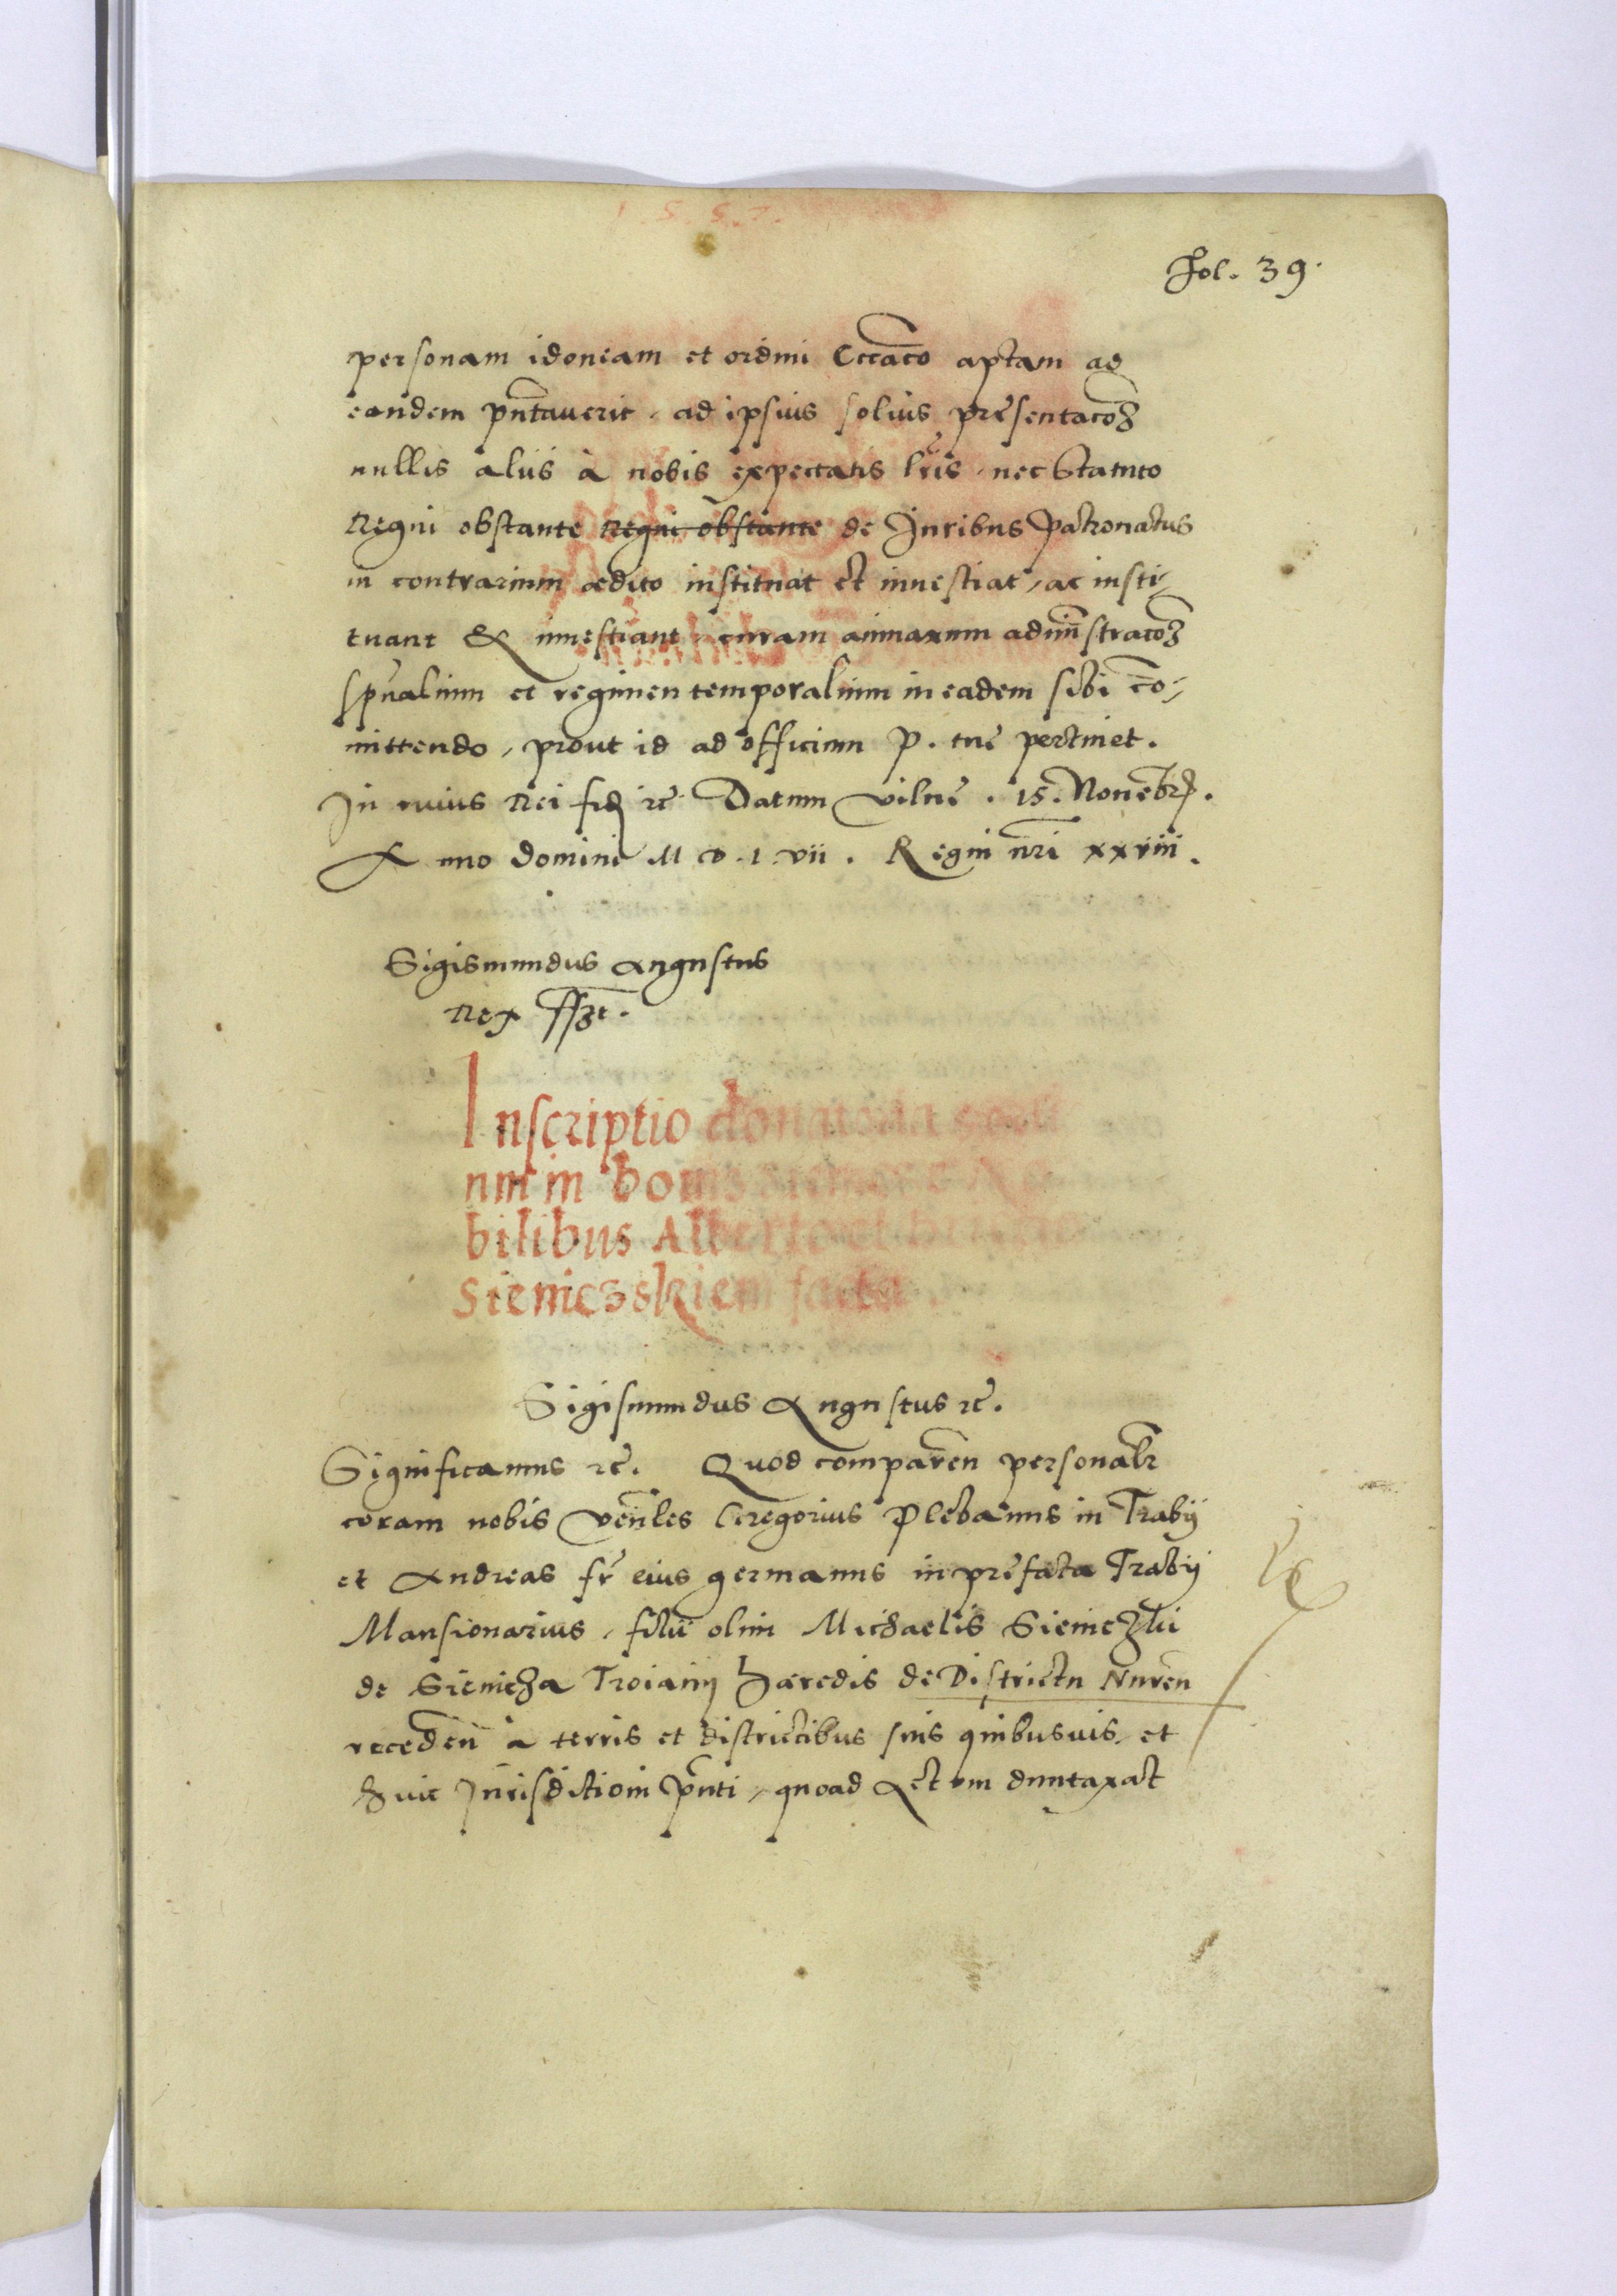 1.5.5.7.
Fol. 39.
personam idoneam et ordini Eccaco aptam ad
eandem pntauerit, ad ipsius solius presentacoȝ
nullis aliis à nobis expectatis lris, nec Statuto
Regni obstante Regni obstante de Juribus Patronatus
in contrarium ædito instituat et inuestiat, ac insti-
tuant & inuestiant, curam animarum administracoȝ
spualium et regimen temporalium in eadem sibi co-
mittendo, prout id ad officium P. tue pertinet.
In cuius Rei fidē ꝛc Datum Vilne. 15. Nouebr.
Anno domini M D L vii. Regni nri xxviii.
Sigismundus Augustus
Rex sszt.
Inscriptio donatoria
in bonis No
bilibus Alberto et
Sieniczskiem facta.
Sigismundus Augustus ꝛc.
Significamus ꝛc. Quod comparen personalr
coram nobis Venles Gregorius Plebanus in Trabij
et Andreas fr eius germanus in prefata Trabij
Mansionarius, filii olim Michaelis Sieniczki
de Sienicza Troianij hæredis de Districtu Nuren
receden à terris et districtibus suis quibusuis, et
huic Jurisdictioni pnti, quoad Actum duntaxat